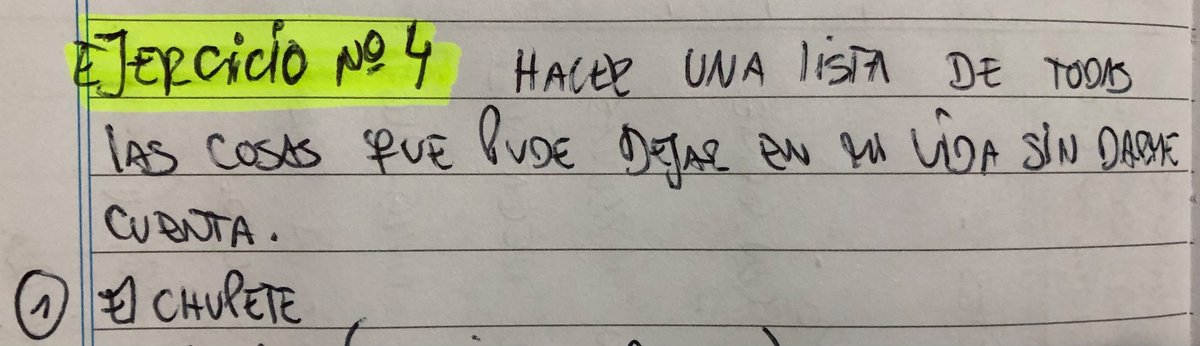 EJERCICIO Nº 4 HACER UNA LISTA DE TODAS
LAS COSAS QUE PUDE DEJAR EN MI VIDA SIN DARME
CUENTA.
① El CHUPETE